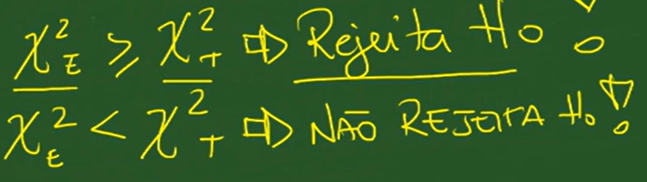 χ²E ≥ χ²T ⇨ Rejeita Ho!
χ²E < χ²T ⇨ NÃO REJEITA Ho!